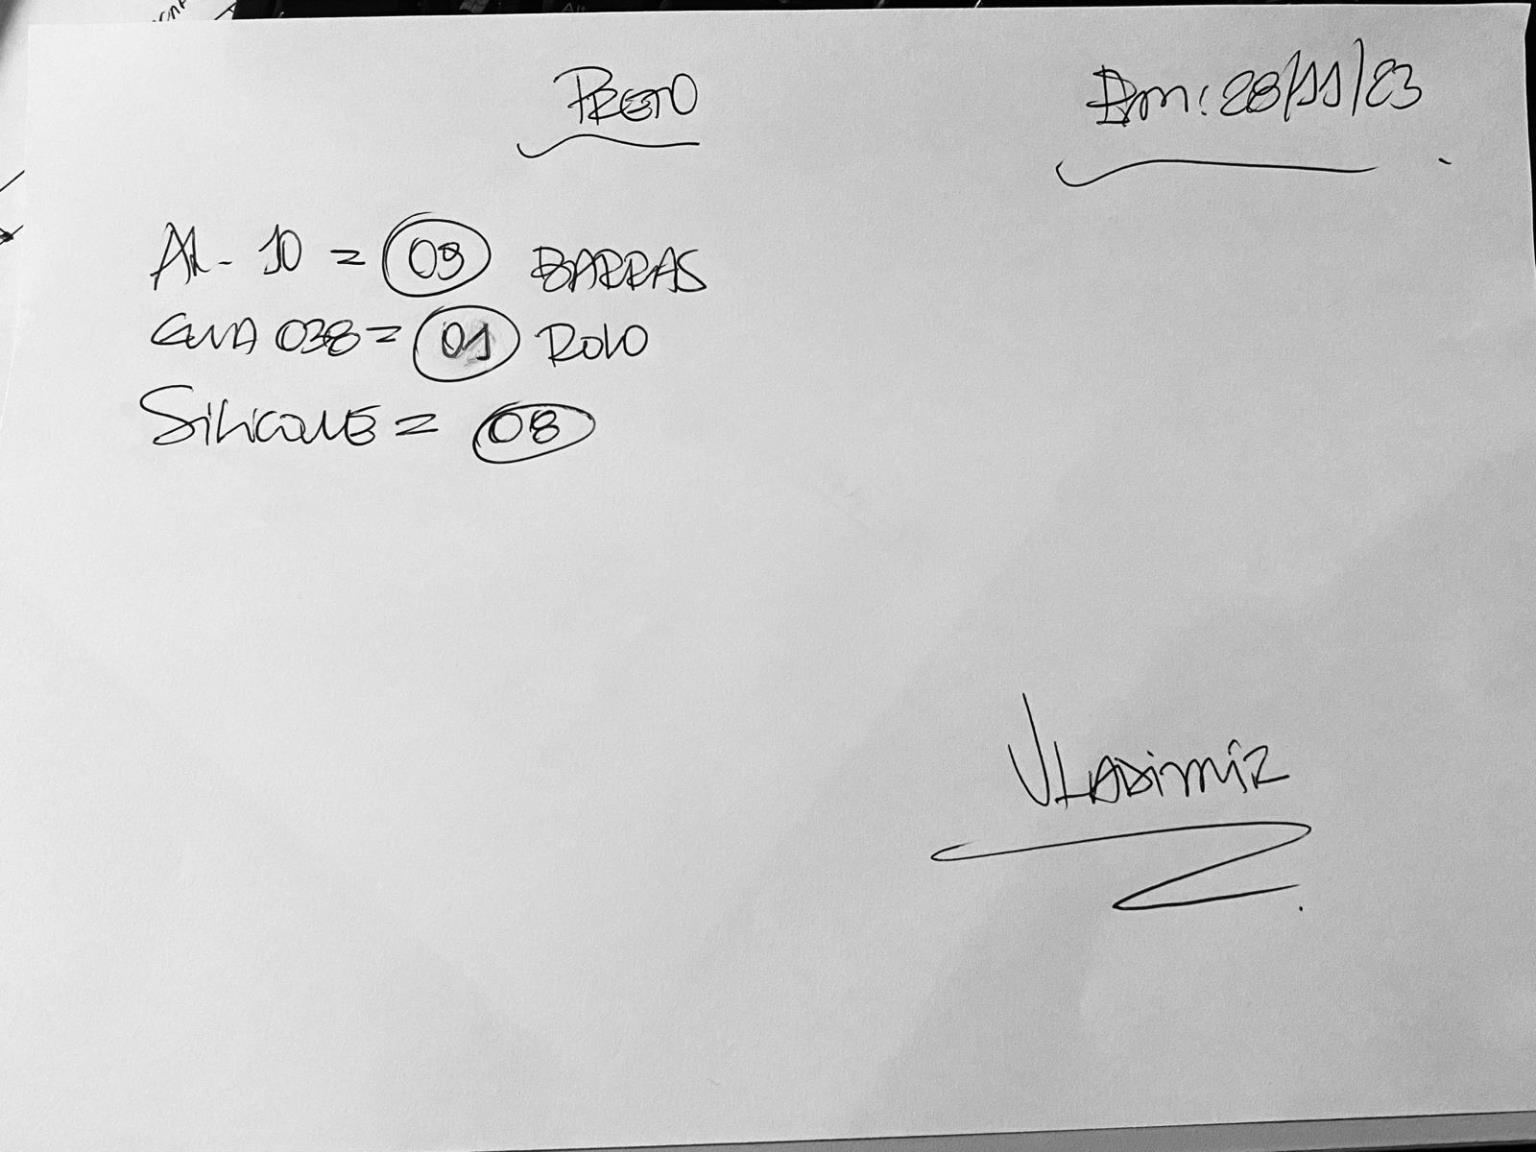 PRETO
Em: 28/11/23
AL- 10 = 09 BARRAS
GUA 038 = 01 ROLO
SILICONE = 08
VLADIMIR